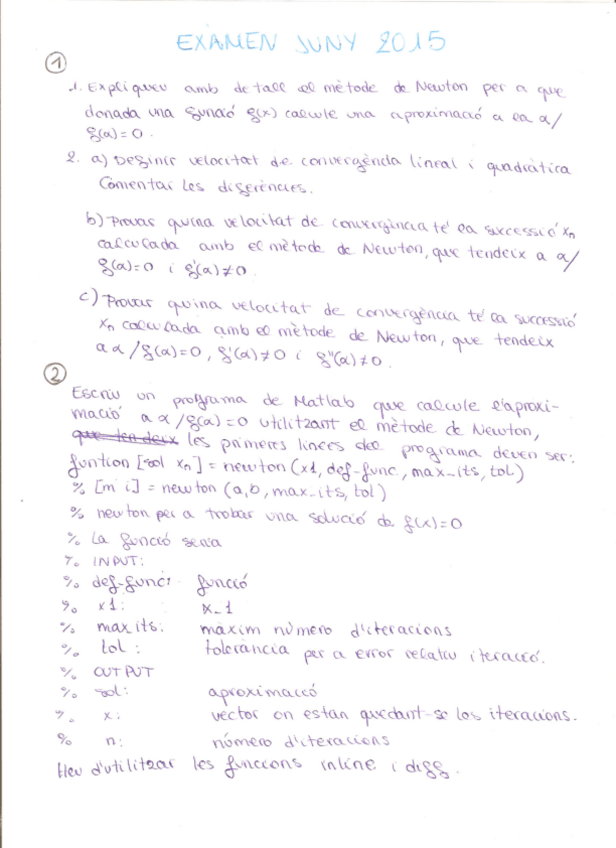 EXAMEN JUNY 2015
①
1. Expliqueu amb detall el mètode de Newton per a que
donada una funció f(x) calcule una aproximació a la α/
f(α)=0.
2. a) Definir velocitat de convergència lineal i quadràtica
Comentar les diferències.
b) Provar quina velocitat de convergència té la successió xn
calculada amb el mètode de Newton, que tendeix a α/
f(α)=0 i f'(α)≠0.
c) Provar quina velocitat de convergència té la successió
xn calculada amb el mètode de Newton, que tendeix
a α/f(α)=0, f'(α)≠0 i f''(α)≠0.
②
Escriu un programa de Matlab que calcule l'aproxi-
mació a α/f(α)=0 utilitzant el mètode de Newton,
que tendeix les primeres línees del programa deven ser:
funtion [sol xn] = newton (x1, def-func, max_its, tol)
% [m i] = newton (a,b, max_its, tol)
% newton per a trobar una solució de f(x)=0
% La funció seria
% INPUT:
% def-func: funció
% x1: x_1
% max its: màxim número d'iteracions
% tol: tolerància per a error relatiu iteració.
% OUTPUT
% sol: aproximació
% x: vector on estan quedant-se los iteracions.
% n: número d'iteracions
Heu d'utilitzar les funcions inline i diff.